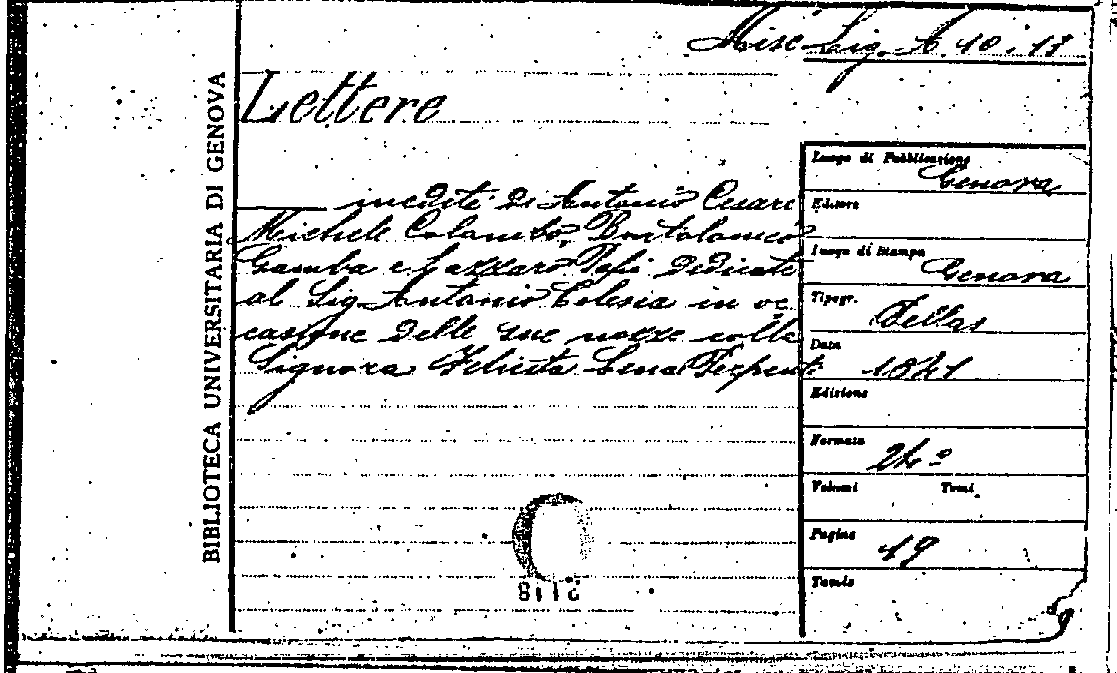 Misc Lig. A 10.11
BIBLIOTECA UNIVERSITARIA DI GENOVA
Lettere
inedite di Antonio Cesari
Michele Colombo, Bartolomeo
Gamba e Lazzaro Papi dedicate
al Sig. Antonio Celesia in oc
casione delle sue nozze colla
Signora Felicita Lena Serpenti
Luogo di Pubblicazione
Genova
Editore
Luogo di Stampa
Genova
Tipogr.
Data
1841
Edizione
Formato
24°
Volumi Tomi
Pagine
49
Tavole